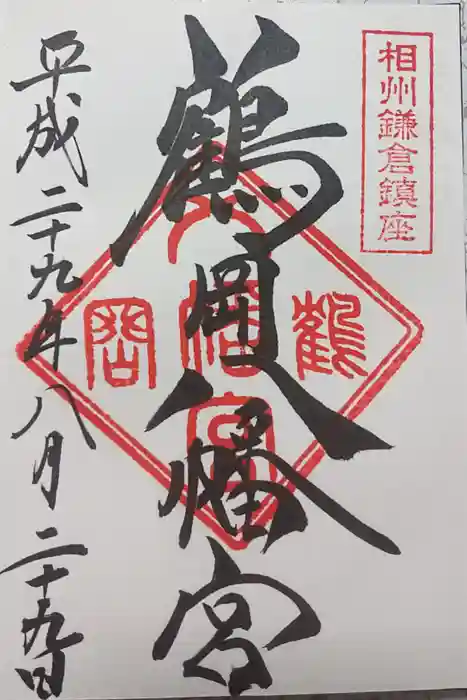 相州鎌倉鎮座
鶴岡八幡宮
鶴岡
八幡宮
平成二十九年八月二十九日